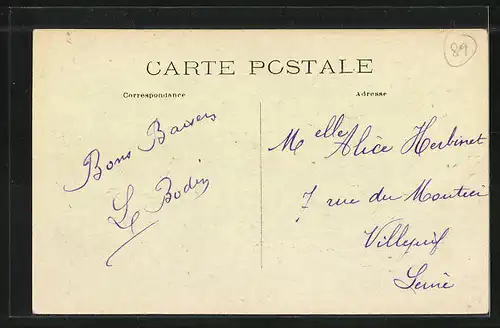 CARTE POSTALE
89
Correspondance
Adresse
Bons Baisers
Le Bodin
Melle Alice Herbinet
7 rue du Moutier
Villejuif
Seine